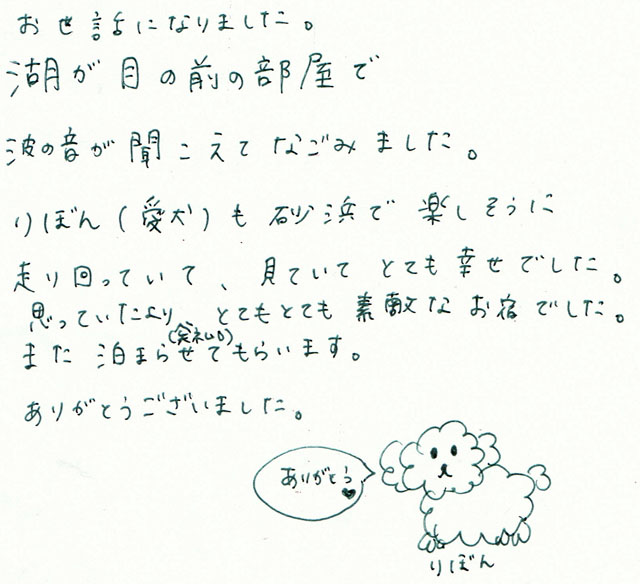 お世話になりました。
湖が目の前の部屋で
波の音が聞こえてなごみました。
りぼん(愛犬)も砂浜で楽しそうに
走り回っていて、見ていてとても幸せでした。
思っていたより、とてもとても素敵なお宿でした。
(失礼)
また泊まらせてもらいます。
ありがとうございました。
ありがとう♥
りぼん